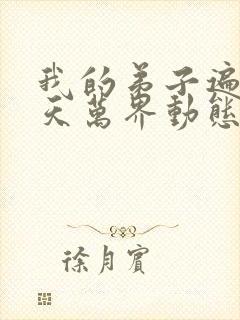 我的弟子遍
天萬界動態
徐月賓